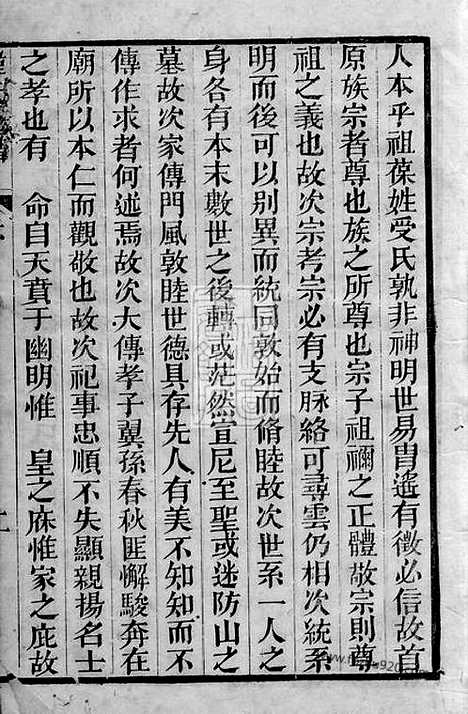 人本乎祖葆姓受氏孰非神明世易胄遙有徵必信故首
原族宗者尊也族之所尊也宗子祖禰之正體敬宗則尊
祖之義也故次宗考宗必有支脉絡可尋雲仍相次統系
明而後可以別異而統同敦始而脩睦故次世系一人之
身各有本末數世之後轉或茫然宣尼至聖或迷防山之
墓故次家傳門風敦睦世德具存先人有美不知知而不
傳作求者何述焉故次大傳孝子翼孫春秋匪懈駿奔在
廟所以本仁而觀敬也故次祀事忠順不失顯親揚名士
之孝也有　命自天賁于幽明惟　皇之庥惟家之庇故